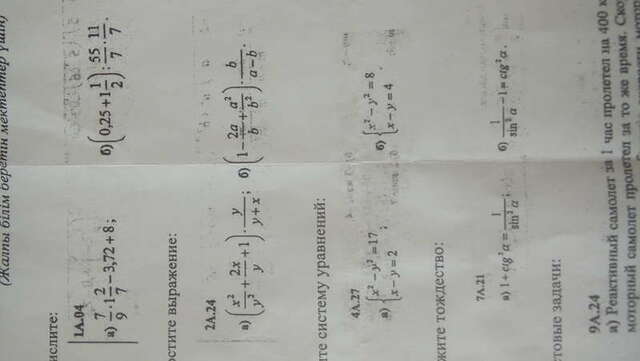 (Жалпы білім беретін мектептер үшін)
ислите:
1А.04
а) 7/9 · 1 2/7 − 3,72 + 8;
б) (0,25 + 1 1/2) : 55/7 · 11/7.
остите выражение:
2А.24
а) (x²/y² + 2x/y + 1) · y/(y + x);
б) (1 − 2a/b + a²/b²) · b/(a − b).
те систему уравнений:
4А.27
а) {x² − y² = 17 {x − y = 2 ;
б) {x² − y² = 8 {x − y = 4
жите тождество:
7А.21
а) 1 + ctg²α = 1/sin²α;
б) 1/sin²α − 1 = ctg²α.
товые задачи:
9А.24
а) Реактивный самолет за 1 час пролетел на 400 к
моторный самолет пролетел за то же время. Ско